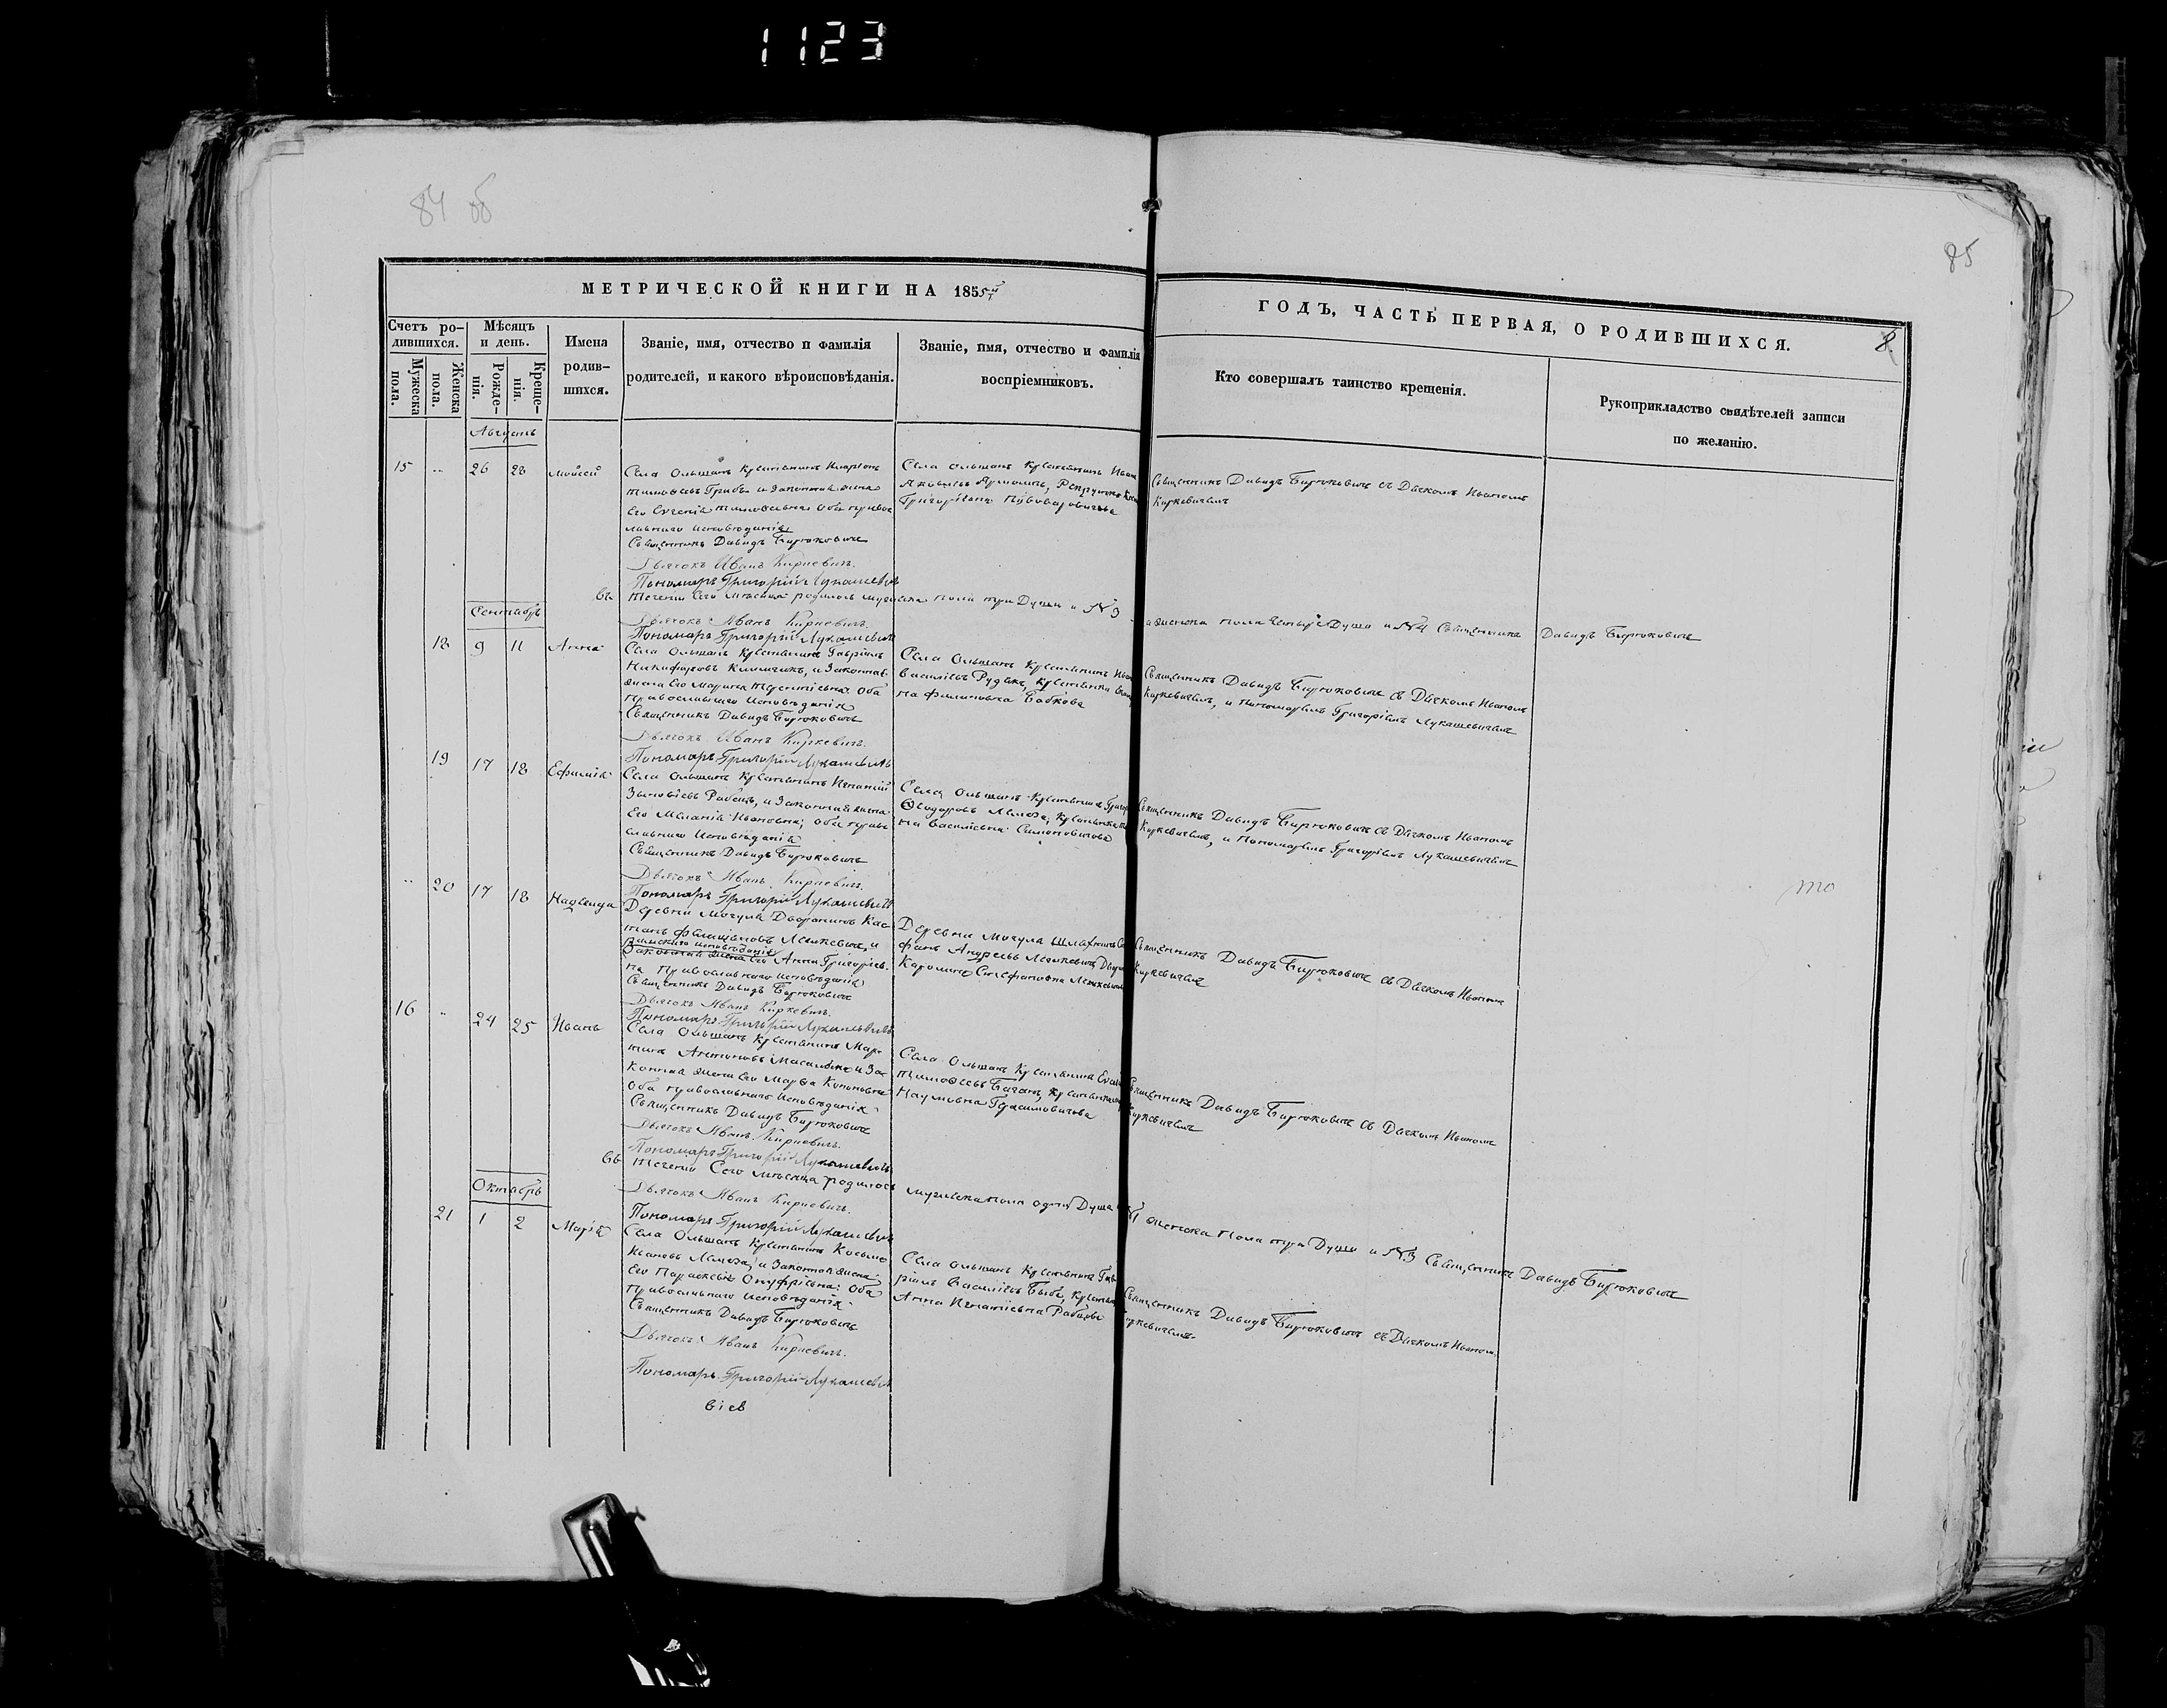 1123
84 об
85
МЕТРИЧЕСКОЙ КНИГИ НА 1855й
ГОДЪ, ЧАСТЬ ПЕРВАЯ, О РОДИВШИХСЯ.
8.
Счетъ ро-
дившихся.
Мужеска
пола.
Женска
пола.
Мѣсяцъ
и день.
Рожде-
нія.
Креще-
нія.
Имена
родив-
шихся.
Званіе, имя, отчество и фамилія
родителей, и какого вѣроисповѣданія.
Званіе, имя, отчество и фамилія
воспріемниковъ.
Кто совершалъ таинство крещенія.
Рукоприкладство свидѣтелей записи
по желанію.
Августъ
15 .. 26 28 Мойсей
Села Ольшанъ Крестьянинъ Иларіонъ
Тимоѳеевъ Грибъ и Законная жена
Его Евгенія Тимоѳеевна Оба право
славнаго исповѣданія
Священникъ Давидъ Бирюковичъ
Дьячокъ Иванъ Киркевичъ.
Пономарь Григорій Лукашевичъ
Села Ольшанъ Крестьянинъ Иванъ
Яковлевъ
Григоріевна Пивоваровичова
Священникъ Давидъ Бирюковичъ съ Дьячкомъ Иваномъ
Киркевичемъ
Въ теченіи Сего Мѣсяца родилось мужеска пола три Души и №3
а женска пола четыре Души и №4 Священникъ Давидъ Бирюковичъ
Дьячокъ Иванъ Киркевичъ.
Пономарь Григорій Лукашевичъ
Сентябрь
18 9 11 Анна
Села Ольшанъ Крестьянинъ Гавріилъ
Никифоровъ Климчикъ, и Законная
жена Его Марина Терентіевна Оба
православнаго исповѣданія
Священникъ Давидъ Бирюковичъ
Дьячокъ Иванъ Киркевичъ.
Пономарь Григорій Лукашевичъ
Села Ольшанъ Крестьянинъ Иванъ
Василіевъ Рудакъ, Крестьянка
на Филиповна Бобкова
Священникъ Давидъ Бирюковичъ съ Дьячкомъ Иваномъ
Киркевичемъ, и Пономаремъ Григоріемъ Лукашевичемъ
19 17 18 Ефимія
Села Ольшанъ Крестьянинъ Игнатій
Зиновіевъ Рабецъ, и Законная жена
Его Меланія Ивановна, Оба право
славнаго исповѣданія
Священникъ Давидъ Бирюковичъ
Дьячокъ Иванъ Киркевичъ.
Пономарь Григорій Лукашевичъ
Села Ольшанъ Крестьянинъ Григорій
Ѳеодоровъ Лемеза, Крестьянка
на Василіевна Симоновичова
Священникъ Давидъ Бирюковичъ съ Дьячкомъ Иваномъ
Киркевичемъ, и Пономаремъ Григоріемъ Лукашевичемъ
.. 20 17 18 Надежда
Деревни Мочула Дворянинъ Кас
танъ Фелиціановъ Лешкевичъ, и
римскаго исповѣданія
Законная жена Его Анна Григоріев
на Православнаго исповѣданія
Священникъ Давидъ Бирюковичъ
Дьячокъ Иванъ Киркевичъ.
Пономарь Григорій Лукашевичъ
Деревни Мочула Шляхтичъ Сте
фанъ Андреевъ Лешкевичъ
Каролина Стефановна Лешкевичъ
Священникъ Давидъ Бирюковичъ съ Дьячкомъ Иваномъ
Киркевичемъ
16 .. 24 25 Иванъ
Села Ольшанъ Крестьянинъ Мар
тинъ Антоновъ и За
конная жена Его Марѳа Кононовна
Оба православнаго исповѣданія
Священникъ Давидъ Бирюковичъ
Дьячокъ Иванъ Киркевичъ.
Пономарь Григорій Лукашевичъ
Села Ольшанъ Крестьянинъ
Тимоѳеевъ Баганъ, Крестьянка
Наумовна Герасимовичова
Священникъ Давидъ Бирюковичъ съ Дьячкомъ Иваномъ
Киркевичемъ
Въ теченіи Сего мѣсяца родилось мужеска пола одна Душа
№1 женска пола три Души и №3 Священникъ Давидъ Бирюковичъ
Дьячокъ Иванъ Киркевичъ.
Пономарь Григорій Лукашевичъ
Октябрь
21 1 2 Марія
Села Ольшанъ Крестьянинъ Косьма
Ивановъ Лемеза, и Законная жена
Его Параскевія Онуфріевна Оба
Православнаго исповѣданія
Священникъ Давидъ Бирюковичъ
Дьячокъ Иванъ Киркевичъ.
Пономарь Григорій Лукашевичъ
Села Ольшанъ Крестьянинъ Гав
ріилъ Василіевъ Крестьянка
Анна Игнатіевна Рабцова
Священникъ Давидъ Бирюковичъ съ Дьячкомъ Иваномъ
Киркевичемъ